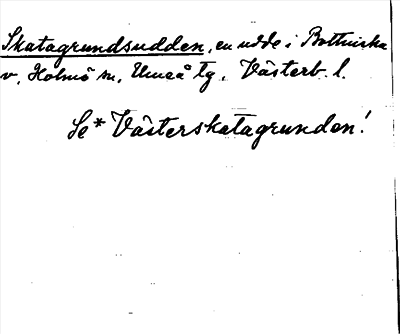 Skatagrundsudden, en udde i Bottniska
v, Holmö sn, Umeå tg, Västerb. l.
Se * Västerskatagrunden!